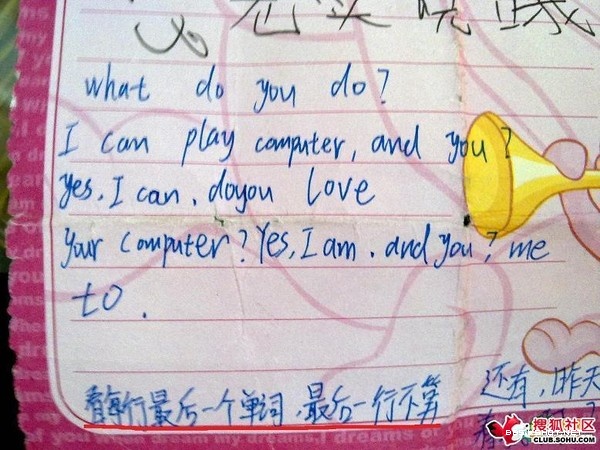 what do you do?
I can play computer, and you?
Yes, I can. doyou love
your computer? Yes, I am. and you? me
to.
看每行最后一个单词,最后一行不算
还有,昨天
搜狐社区
CLUB.SOHU.COM